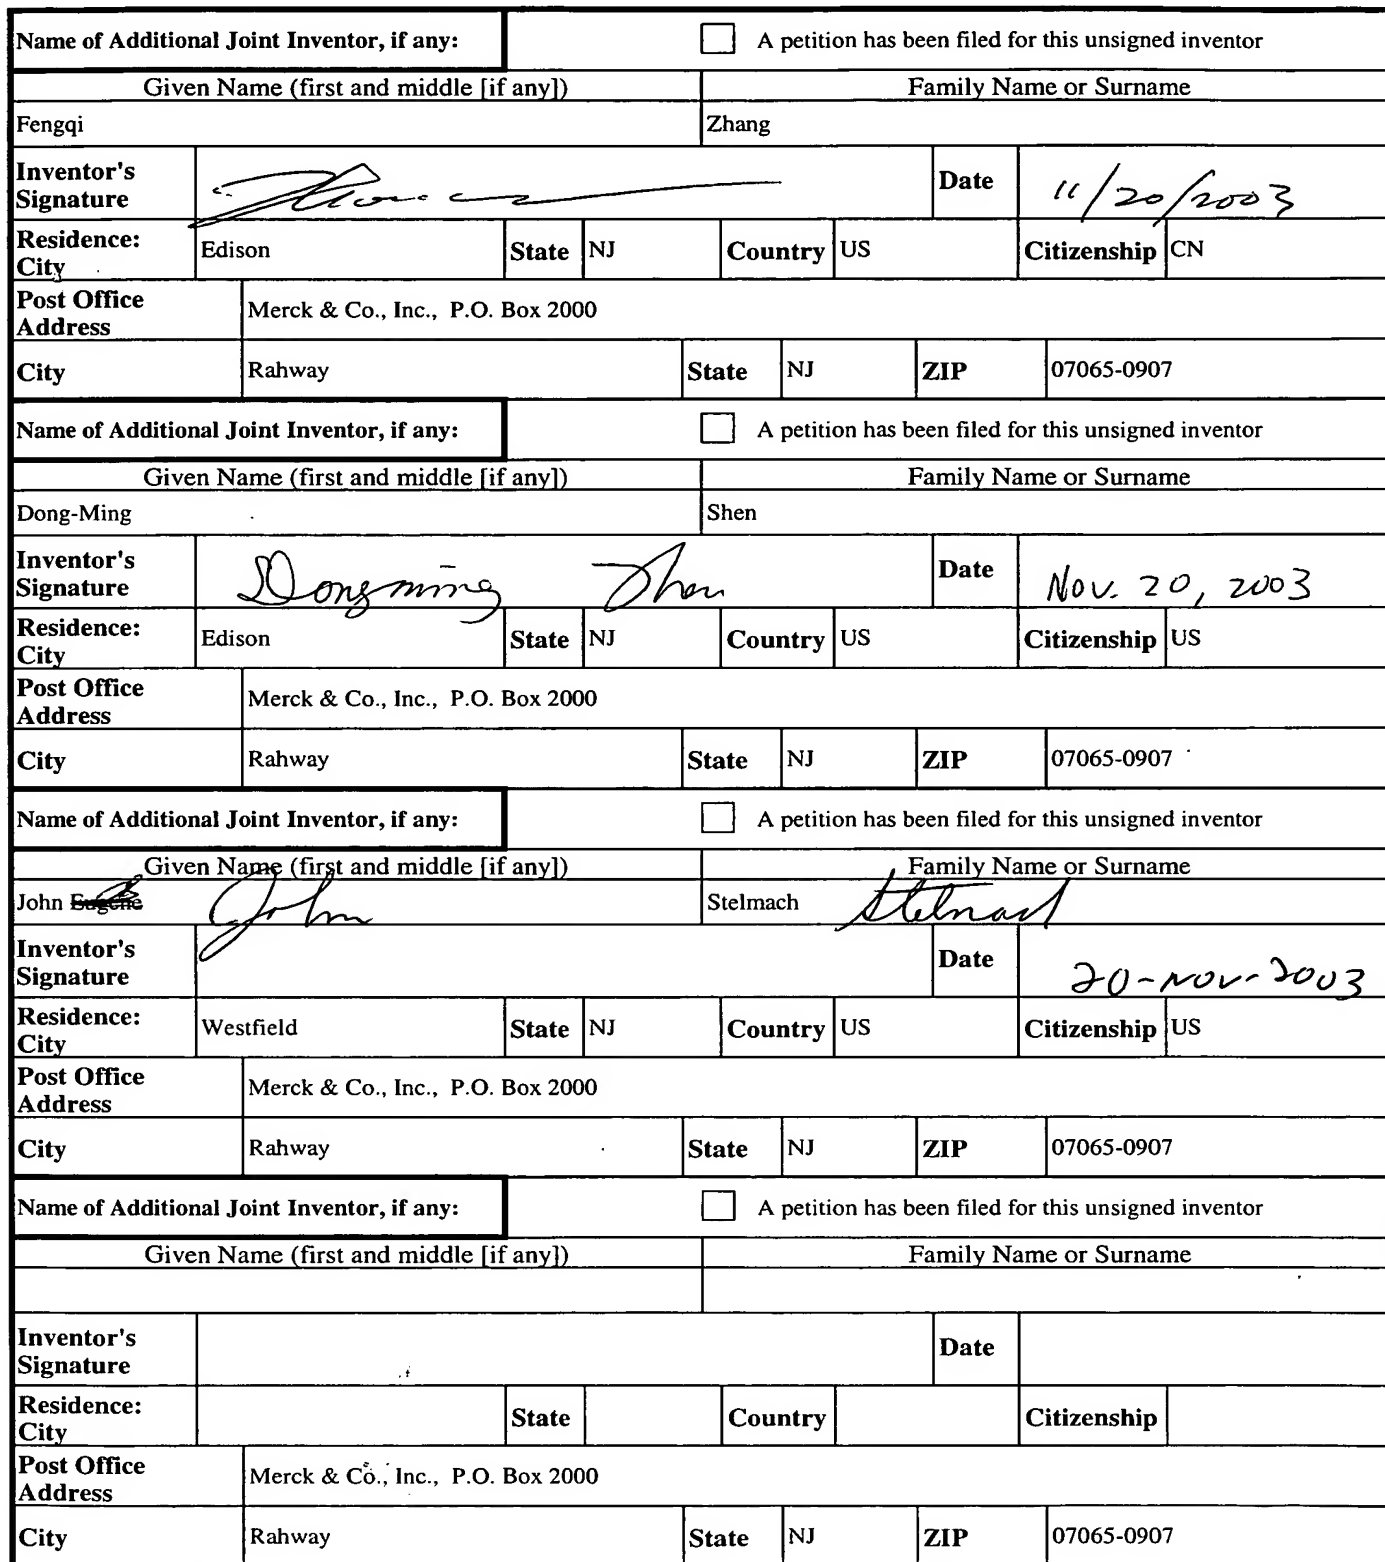 Name of Additional Joint Inventor, if any: A petition has been filed for this unsigned inventor
Given Name (first and middle [if any]) Family Name or Surname
Fengqi Zhang
Inventor's Signature Date 11/20/2003
Residence: City Edison State NJ Country US Citizenship CN
Post Office Address Merck & Co., Inc., P.O. Box 2000
City Rahway State NJ ZIP 07065-0907
Name of Additional Joint Inventor, if any: A petition has been filed for this unsigned inventor
Given Name (first and middle [if any]) Family Name or Surname
Dong-Ming Shen
Inventor's Signature Dongming Shen Date Nov. 20, 2003
Residence: City Edison State NJ Country US Citizenship US
Post Office Address Merck & Co., Inc., P.O. Box 2000
City Rahway State NJ ZIP 07065-0907
Name of Additional Joint Inventor, if any: A petition has been filed for this unsigned inventor
Given Name (first and middle [if any]) Family Name or Surname
John Eugene John Stelmach Stelmach
Inventor's Signature Date 20-Nov-2003
Residence: City Westfield State NJ Country US Citizenship US
Post Office Address Merck & Co., Inc., P.O. Box 2000
City Rahway State NJ ZIP 07065-0907
Name of Additional Joint Inventor, if any: A petition has been filed for this unsigned inventor
Given Name (first and middle [if any]) Family Name or Surname
Inventor's Signature Date
Residence: City State Country Citizenship
Post Office Address Merck & Co., Inc., P.O. Box 2000
City Rahway State NJ ZIP 07065-0907